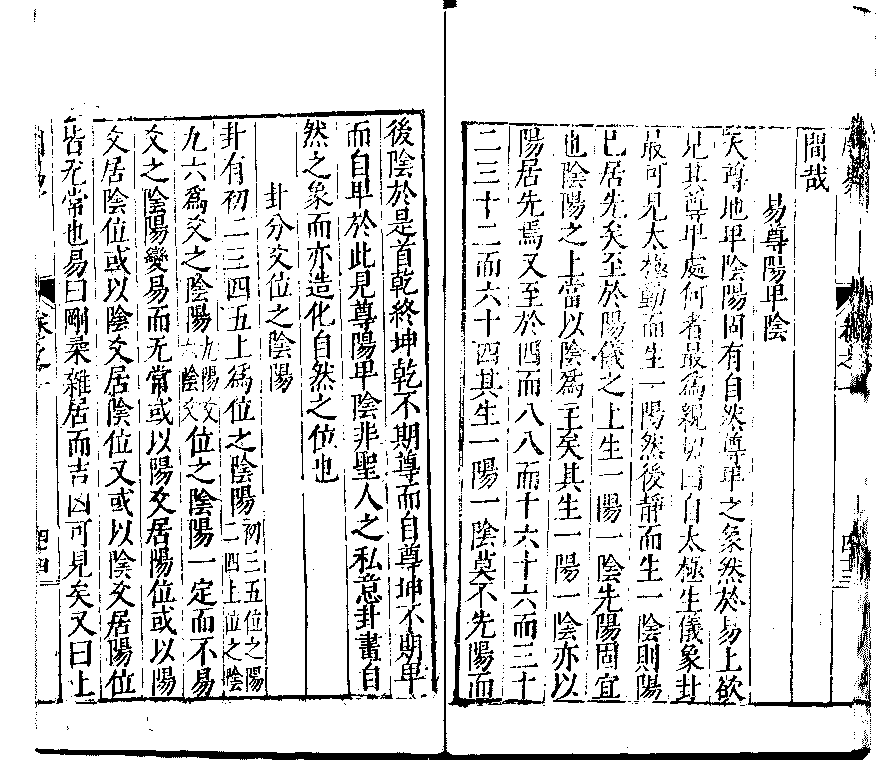 間哉
易尊陽卑陰
天尊地卑陰陽固有自然尊卑之象然於易上欲
見其尊卑處何者最為親切曰自太極生儀象卦
最可見太極動而生一陽然後靜而生一陰則陽
已居先矣至於陽儀之上生一陽一陰先陽固宜
也陰陽之上當以陰為主矣其生一陽一陰亦以
陽居先焉又至於四而八八而十六十六而三十
二三十二而六十四其生一陽一陰莫不先陽而
後陰於是首乾終坤乾不期尊而自尊坤不期卑
而自卑於此見尊陽卑陰非聖人之私意卦畫自
然之象而亦造化自然之位也
卦分爻位之陰陽
卦有初二三四五上為位之陰陽初三五位之陽二四上位之陰
九六為爻之陰陽九陽爻六陰爻位之陰陽一定而不易
爻之陰陽變易而无常或以陽爻居陽位或以陽
爻居陰位或以陰爻居陰位又或以陰爻居陽位
皆无常也易曰剛柔雜居而吉凶可見矣又曰上